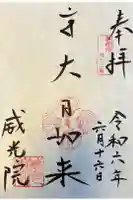 奉拝
令和六年
六月十六日
大日如来
威光院